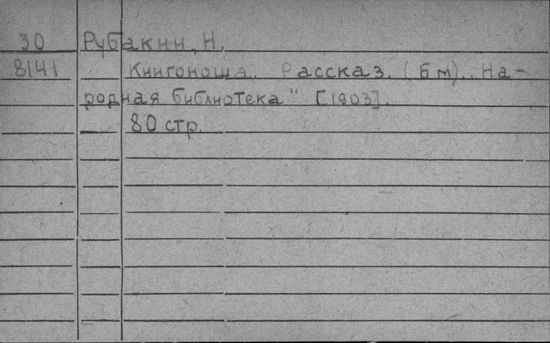 30 Рубакин, Н.
8141 Книгоноша. Рассказ. (Б м). „На-
родная библиотека" [1903].
80 стр.